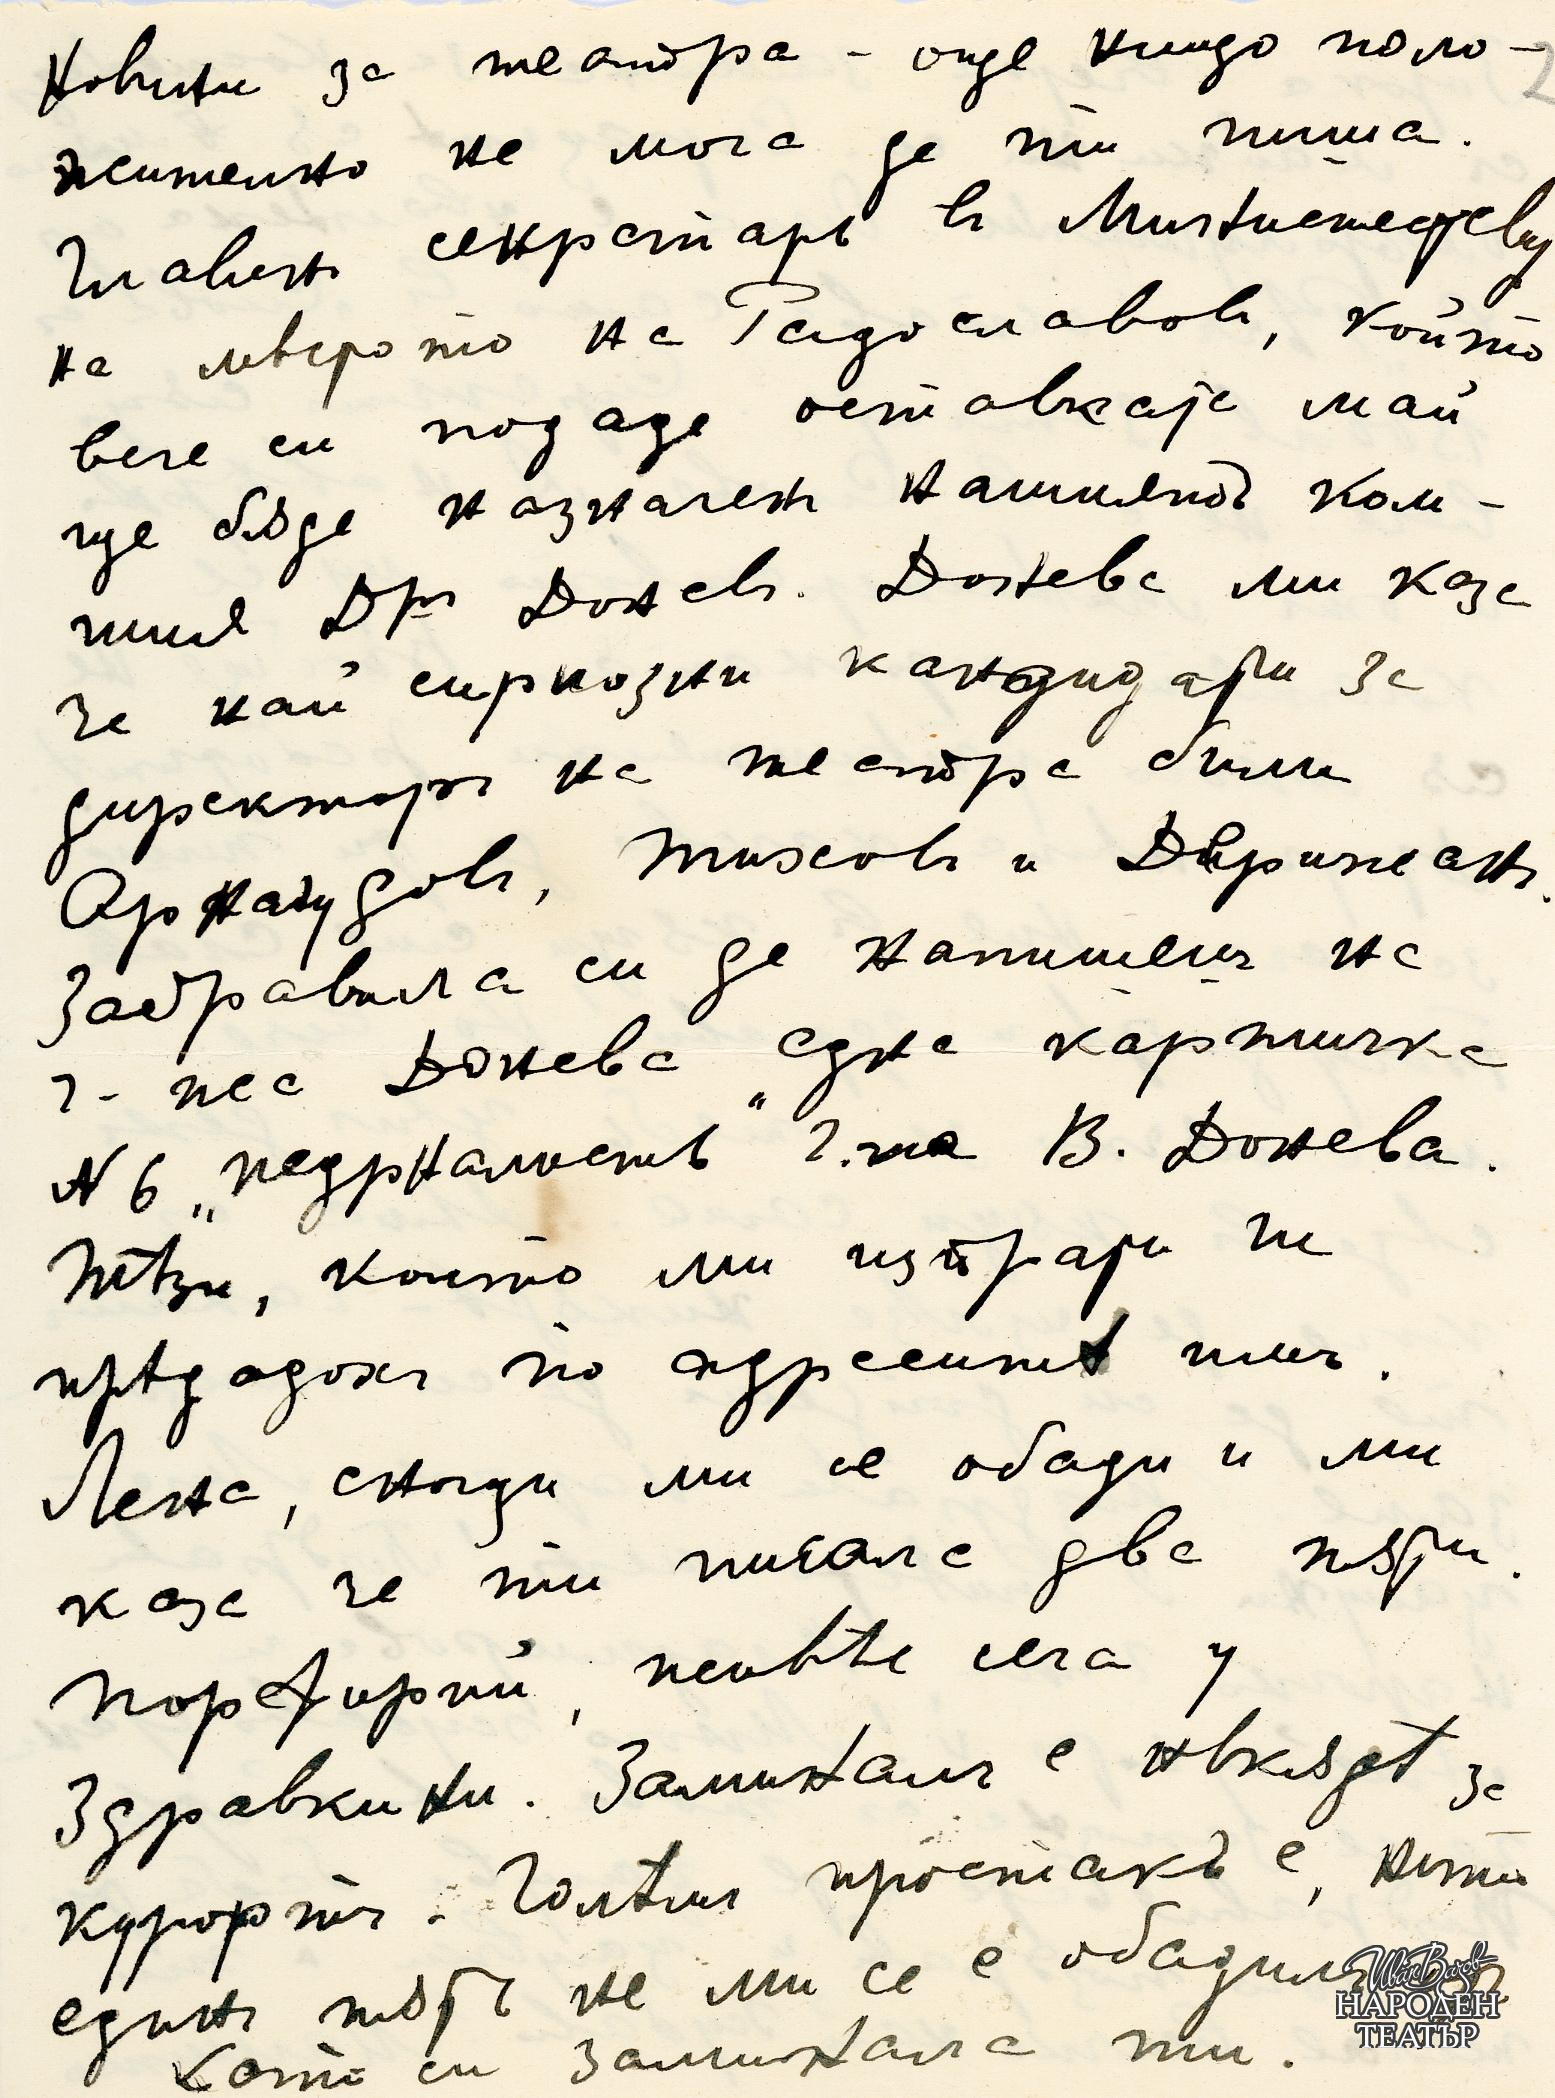 Новини за театра - още нищо поло-
жително не мога да ти пиша.
Главенъ секретаръ въ Министерството
на мѣсрото на Радославовъ, който
вече си подаде оставката май
ще бѫде назначенъ нашиятъ ком-
шия Дръ Доневъ. Донева ми каза
че най сириозни кандидати за
директоръ на театра били
Арнаудовъ, Тиховъ и Дѣрижанъ.
Забравила си да напишешъ на
г-жа Донева "една картичка
N 6 "педрналность" г.жа В. Донева.
Тѣзи, които ми изпрати ги
прѣдадохъ по адреситѣ имъ.
Лена, снощи ми се обади и ми
каза че ти писала два пѫти.
Порфирий, живѣе сега у
Здравкини. Заминалъ е нѣкѫдѣ за
курортъ. Голѣмъ простакъ е, нито
единъ пѫть не ми се е обадилъ
като си заминала ти.
Иван Вазов
НАРОДЕН
ТЕАТЪР
2